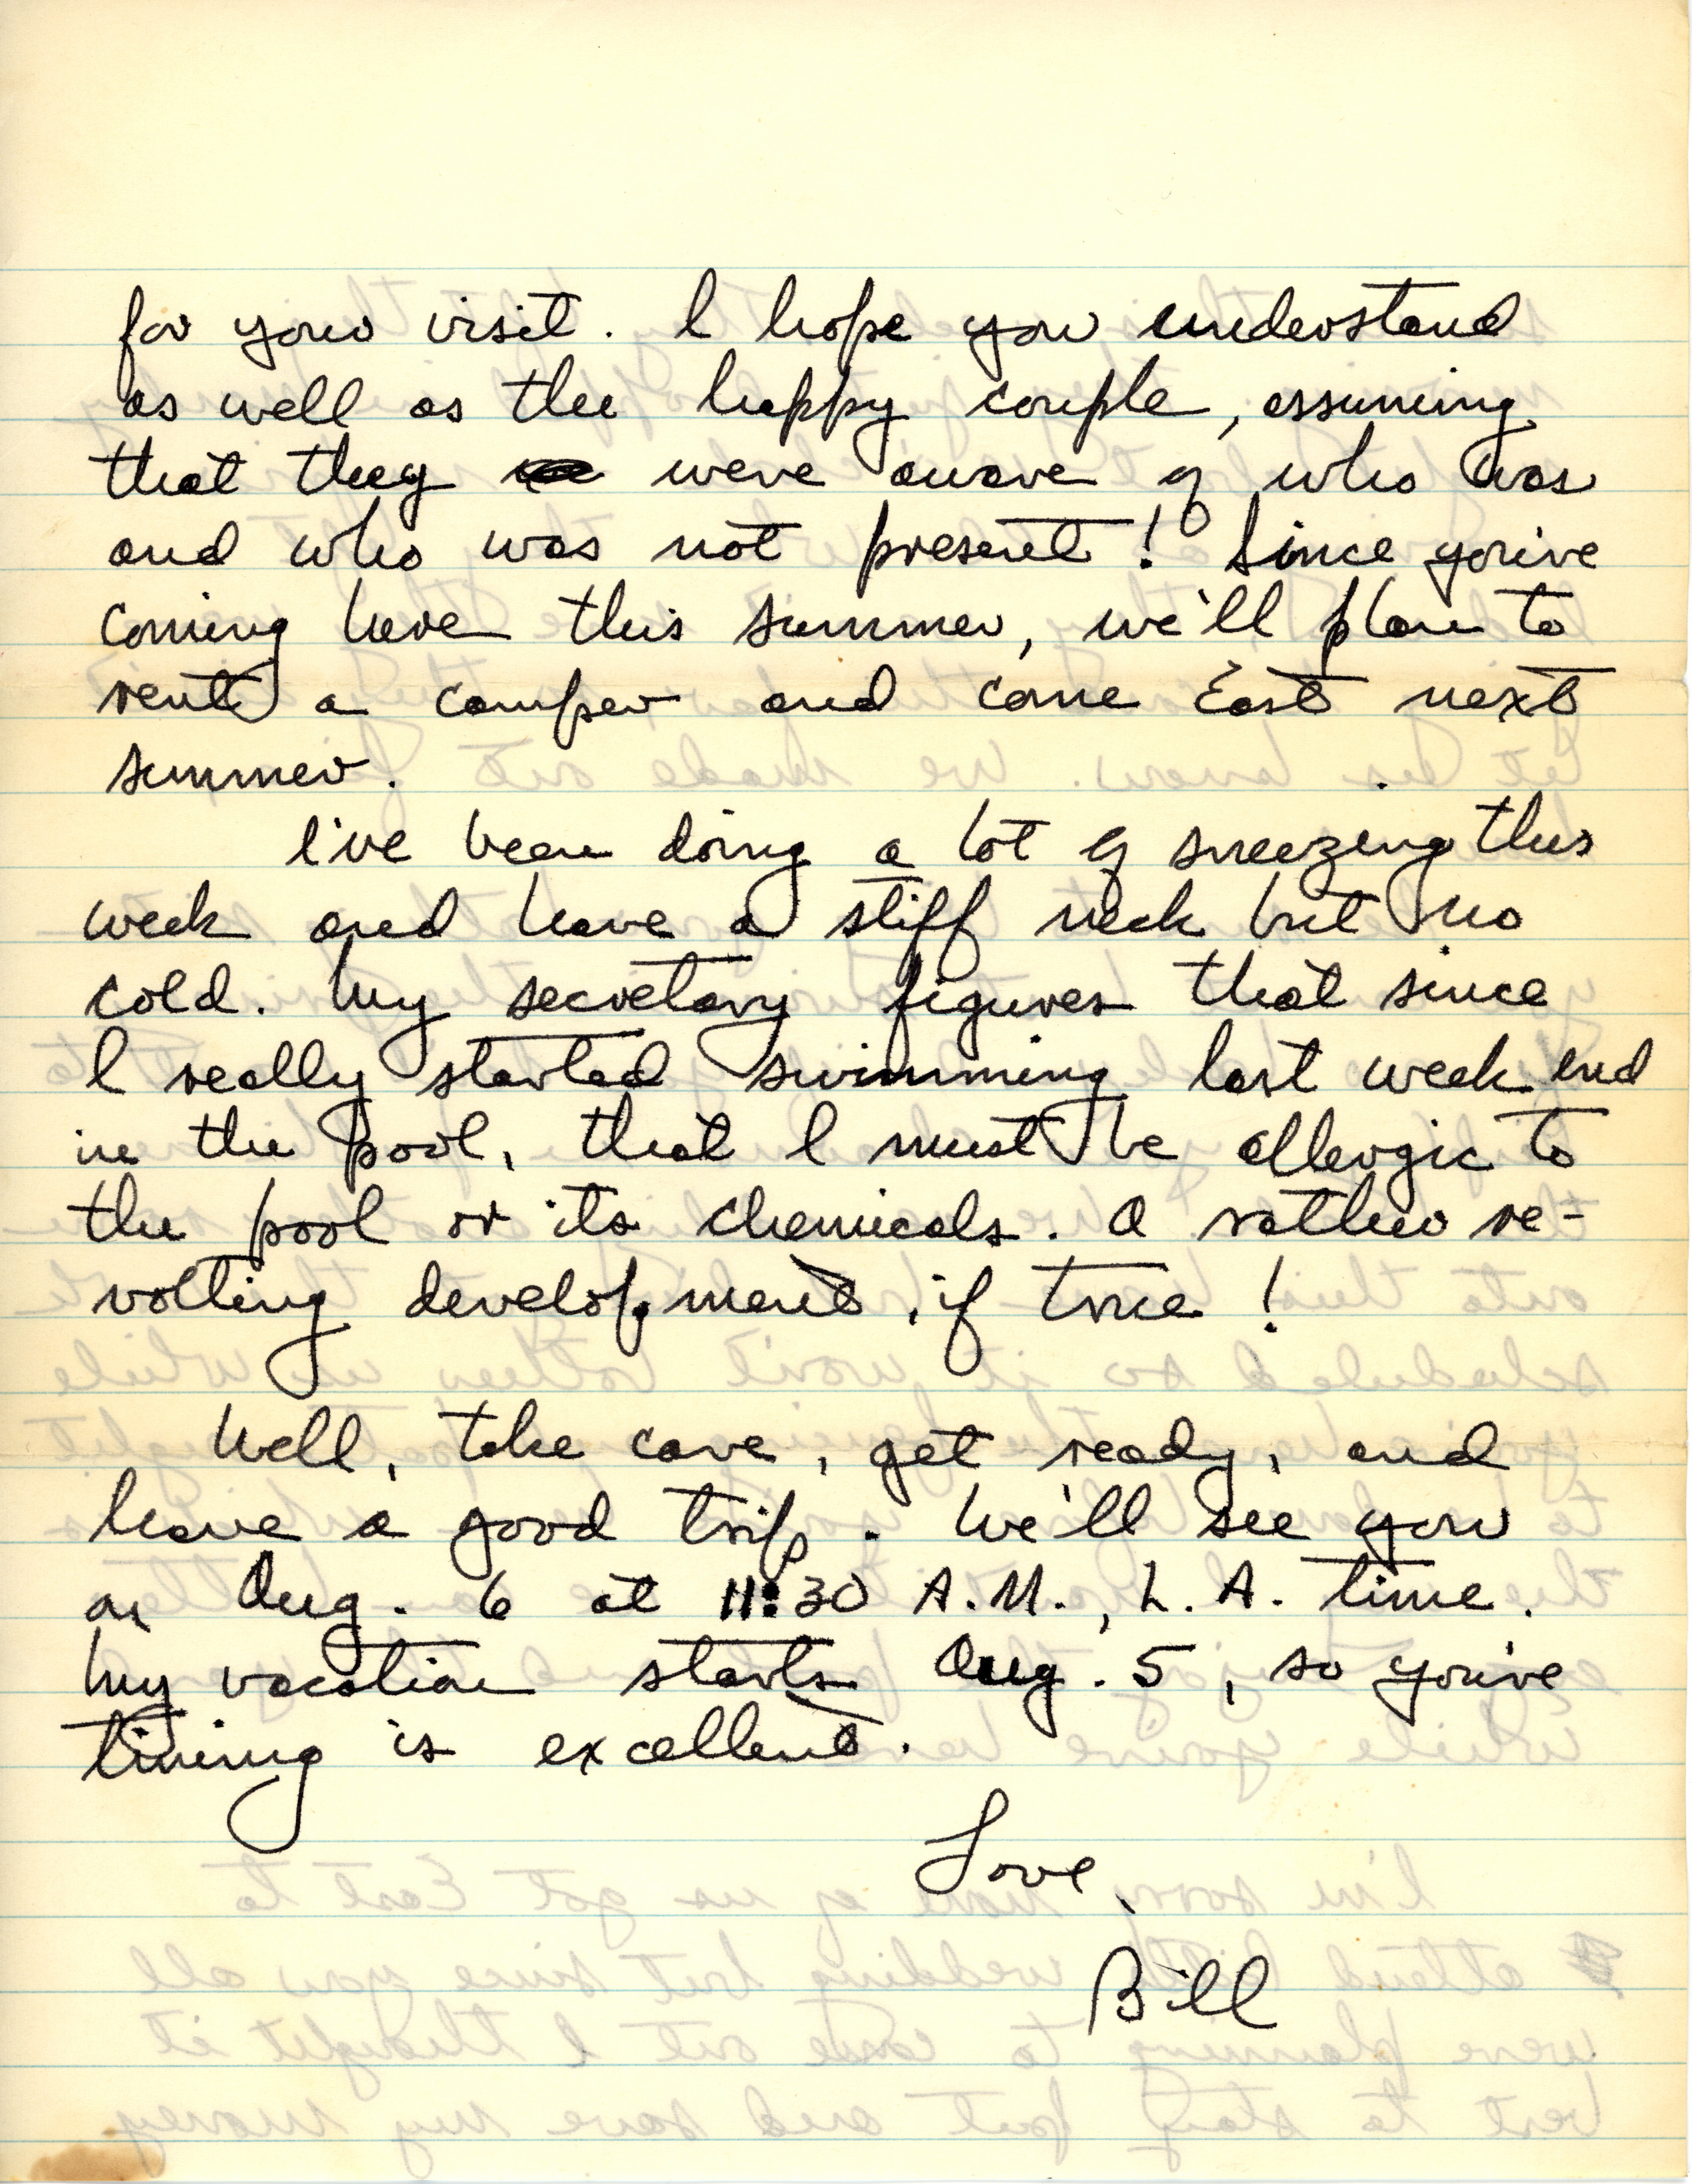 for your visit. I hope you understand
as well as the happy couple, assuming
that they were aware of who was
and who was not present! Since you're
coming here this summer, we'll plan to
rent a camper and come East next
summer.
I've been doing a lot of sneezing this
week and have a stiff neck but no
cold. My secretary figures that since
I really started swimming last week end
in the pool, that I must be allergic to
the pool or its chemicals. A rather re-
volting development, if true!
Well, take care, get ready, and
have a good trip. We'll see you
on Aug. 6 at 11:30 A.M., L.A. time.
My vacation starts Aug. 5, so you're
timing is excellent.
Love,
Bill